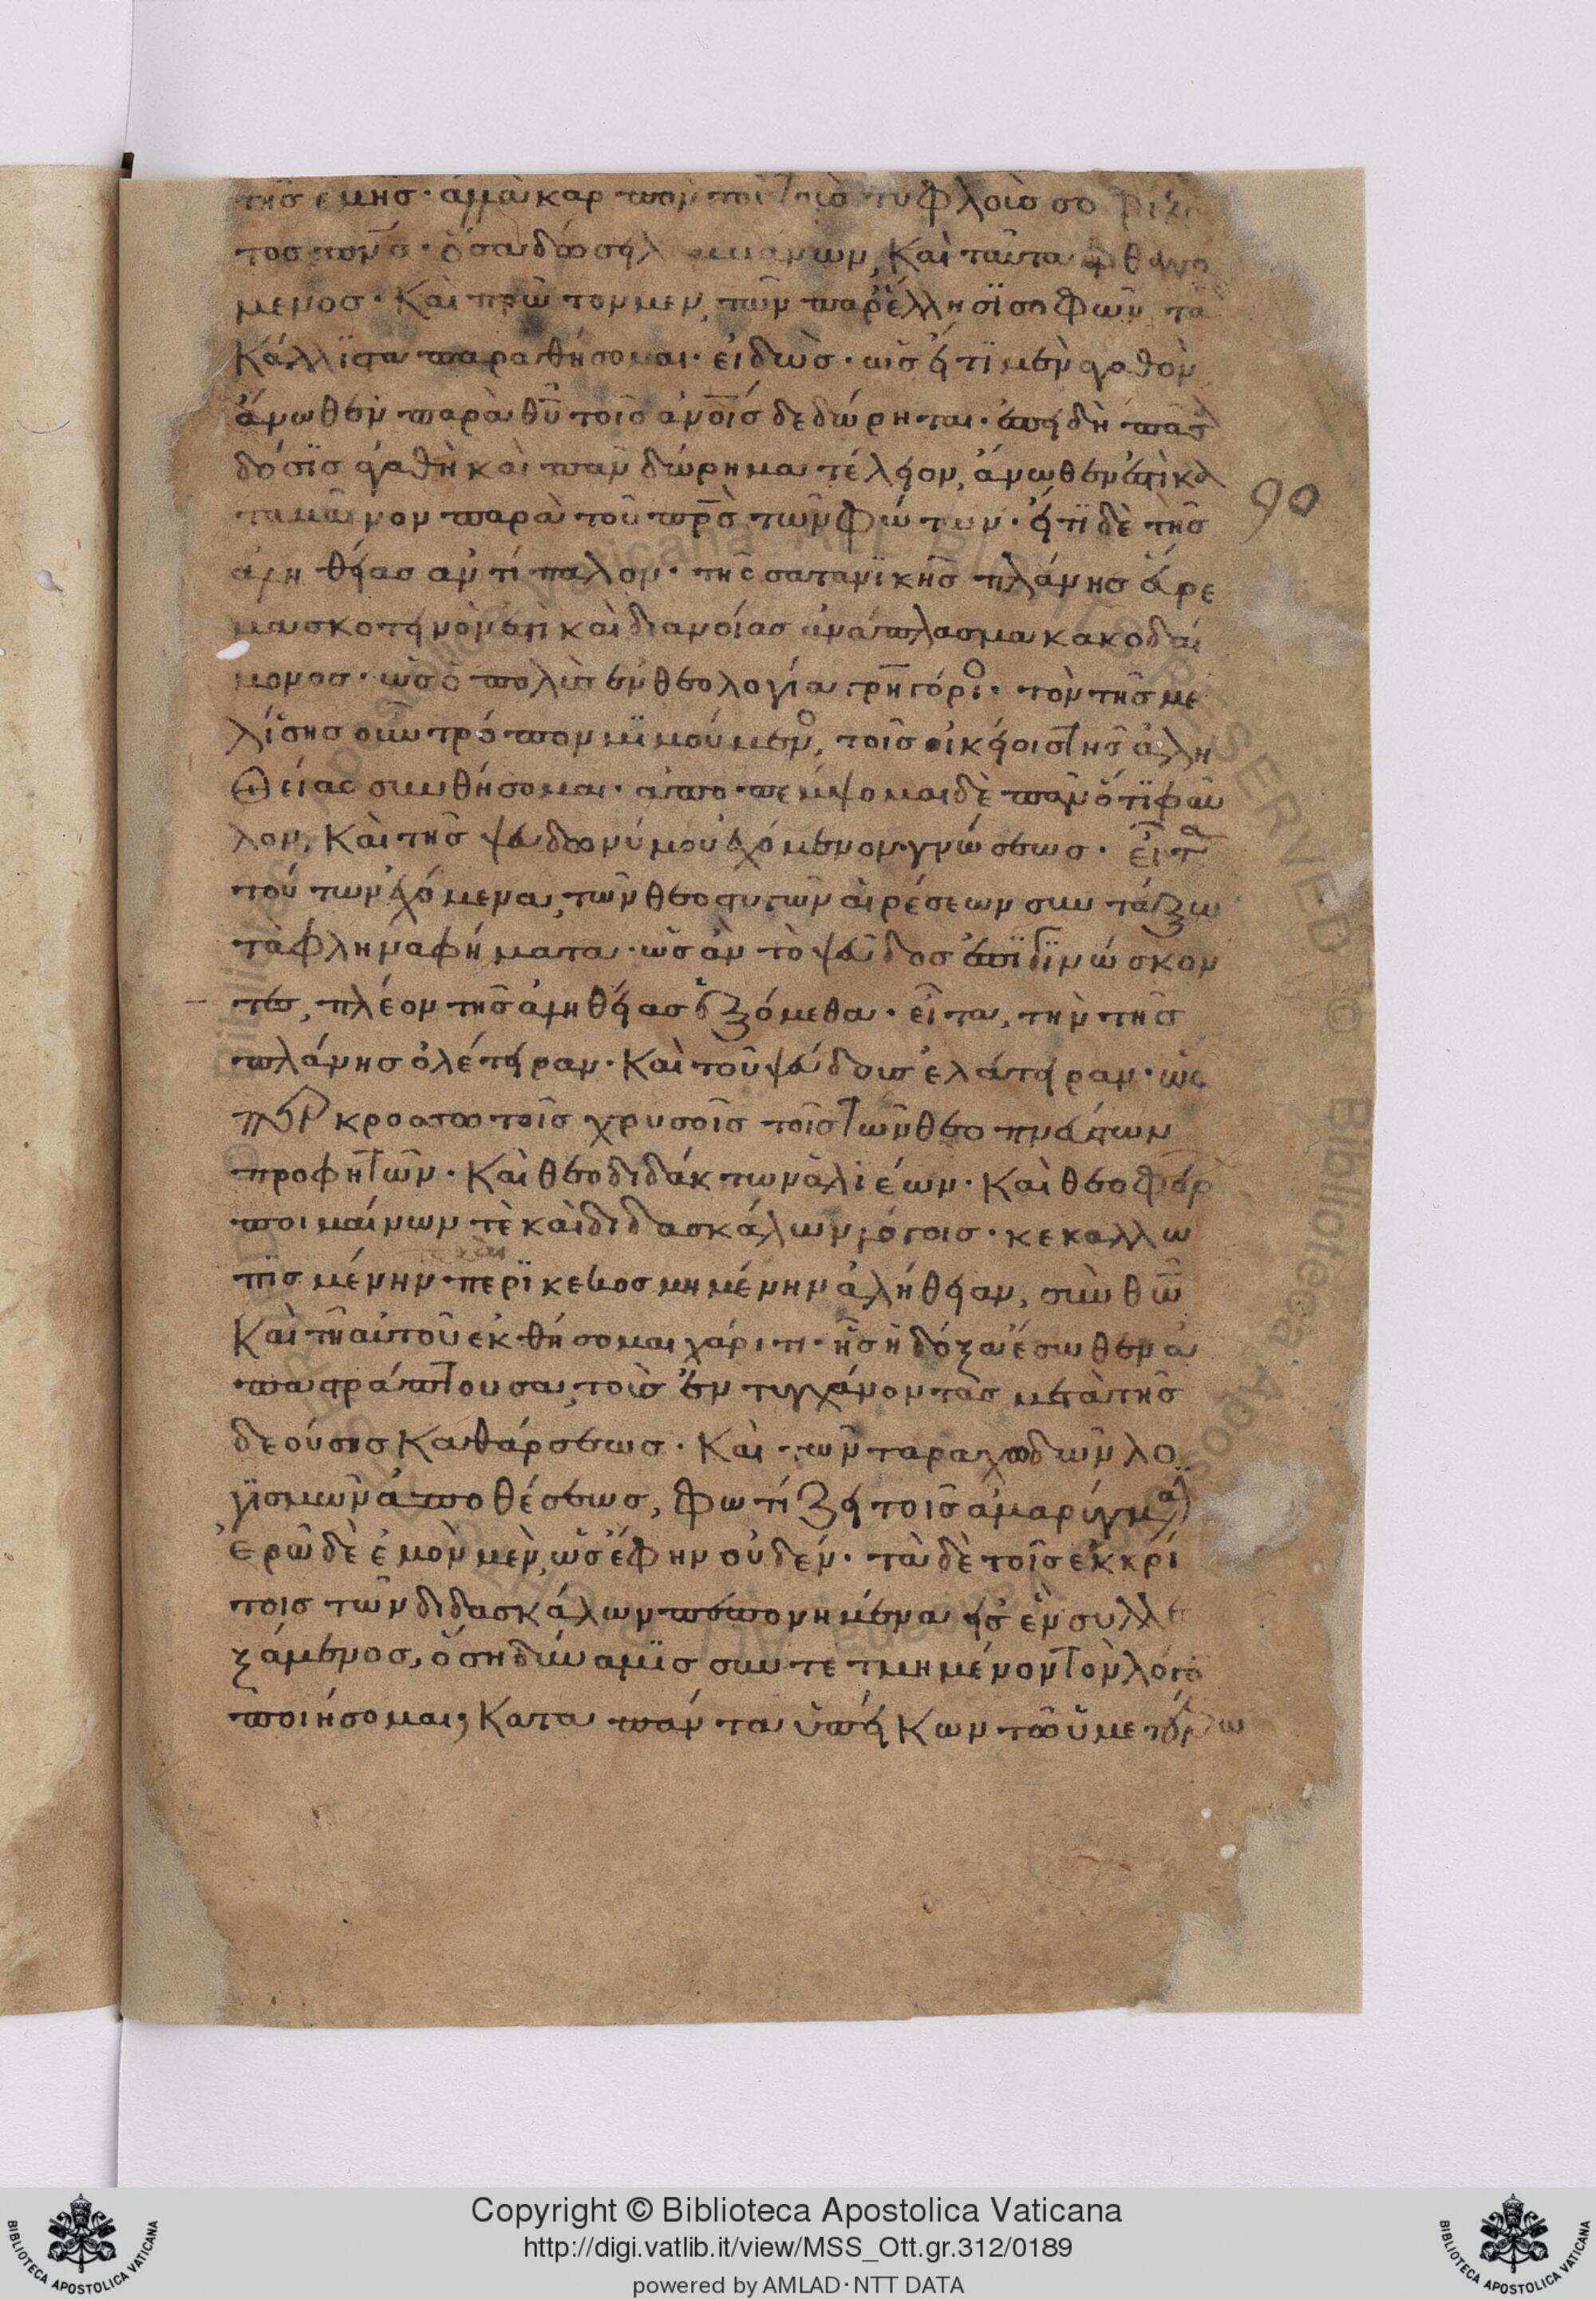 τῆσ ἐμῆσ· ἀλλὰ καρπὸν τοῦ τοὺσ τυφλοὺσ σοφίζον
τοσ πόνουσ· ὅσα δώσει λαμβάνων, καὶ ταῦτα φθεγγό
μενοσ· Καὶ πρῶτον μὲν, τῶν παρ' ἕλλησϊ σοφῶν τὰ
κάλλϊστα παραθήσομαι· εἰδὼσ· ὡσ εἴ τϊ μὲν ἀγαθὸν
ἄνωθεν παρὰ θῦ τοῖσ ἀνοισ δεδώρηται· ἐπειδὴ πᾶσα
δόσϊσ ἀγαθὴ καὶ πᾶν δώρημα τέλειον, ἄνωθεν ἐστὶ κα
ταβαῖνον παρὰ τοῦ πρσ τῶν φώτων· εἴ τϊ δὲ τῆσ
ἀληθείασ ἀντίπαλον· τῆς σατανϊκῆσ πλάνησ εὕρε
μα σκοτεινὸν ἐστὶ καὶ διανοίασ ἀνάπλασμα κακοδαί
μονοσ· ὡσ ὁ πολὺσ ἐν θεολογία γρηγόριος· τὸν τῆσ με
λίσσησ οὖν τρόπον μϊμούμενος, τοῖσ οἰκείοισ τῆσ ἀλη
θείας συνθήσομαι· ἀποπέμψομαι δὲ πᾶν ὅτϊ φαῦ
λον, καὶ τῆσ ψευδωνύμου ἐχόμενον γνώσεωσ· εἶτα
τούτων ἐχόμενα, τῶν θεοστυγῶν αἱρέσεων συντάξω
τὰ φληναφήματα· ὡσ ἂν τὸ ψεῦδοσ ἐπϊγϊνώσκον
τεσ, πλέον τῆσ ἀληθείασ ἑξόμεθα· εἶτα, τὴν τῆσ
πλάνησ ὀλέτειραν· Καὶ τοῦ ψεύδουσ ἐλάτειραν· ὥσ
περ κροσσωτοῖσ χρυσοῖσ τοῖσ τῶν θεοπνεύστων
προφητῶν· Καὶ θεοδιδάκτων ἁλιέων· Καὶ θεοφόρων
ποιμαίνων τὲ καὶ διδασκάλων λόγοισ· κεκαλλω
πϊσμένην· καὶ περϊκεκοσμημένην ἀλήθειαν, σὺν θῶ
Καὶ τῆ αὐτοῦ ἐκθήσομαι χάριτι· ἧσ ἡ δόξα ἔσωθεν ἀ
παστράπτουσα, τοὺσ ἐντυγχάνοντασ μετὰ τῆσ
δεούσησ καθάρσεωσ· Καὶ τῶν ταραχωδῶν λο
γϊσμῶν ἀποθέσεωσ, φωτίζει τοῖσ ἀμαρύγμασι
ἐρῶ δὲ ἐμὸν μὲν, ὡσ ἔφην οὐδέν· τὰ δὲ τοῖσ ἐκκρί
τοισ τῶν διδασκάλων πεπονημένα εἰσ ἓν συλλε
ξάμενοσ, ὅση δύναμϊσ συντετμημένον τὸν λόγον
ποιήσομαι, κατὰ πάντα ὑπείκων τῶ ὑμετέρω
90
Copyright © Biblioteca Apostolica Vaticana
http://digi.vatlib.it/view/MSS_Ott.gr.312/0189
powered by AMLAD·NTT DATA
BIBLIOTECA APOSTOLICA VATICANA
BIBLIOTECA APOSTOLICA VATICANA